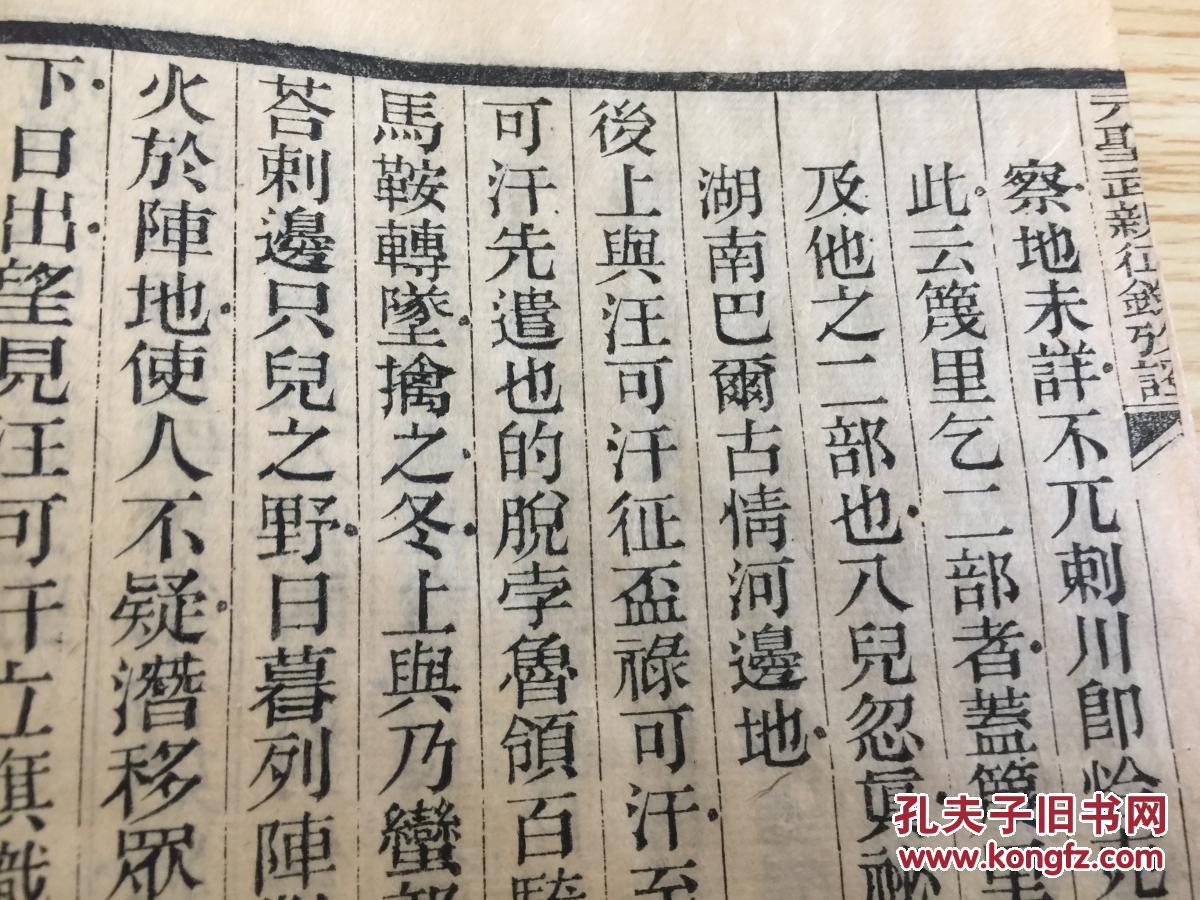 元聖武親征錄
察地未詳不兀剌川卽
此云篾里乞二部者蓋
及他之二部也八兒忽眞
湖南巴爾古情河邊地
後上與汪可汗征盃祿可汗至
可汗先遣也的脫孛魯領百騎
馬鞍轉墜擒之冬上與乃蠻部
荅剌邊只兒之野日暮列陣
火於陣地使人不疑潛移眾
下日出望見汪可汗立旗幟
孔夫子旧书网
www.kongfz.com